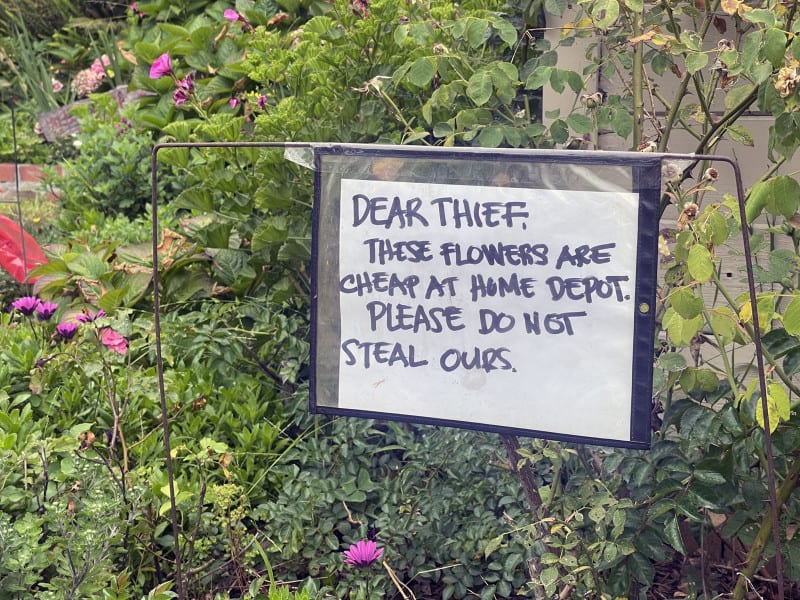 DEAR THIEF,
THESE FLOWERS ARE
CHEAP AT HOME DEPOT.
PLEASE DO NOT
STEAL OURS.